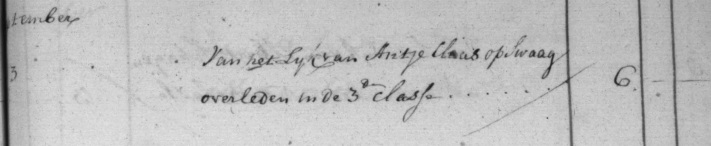 tember
3 Van het Lyk van Antje Claas op Swaag
overleden in de 3de Classe . . . . . . 6